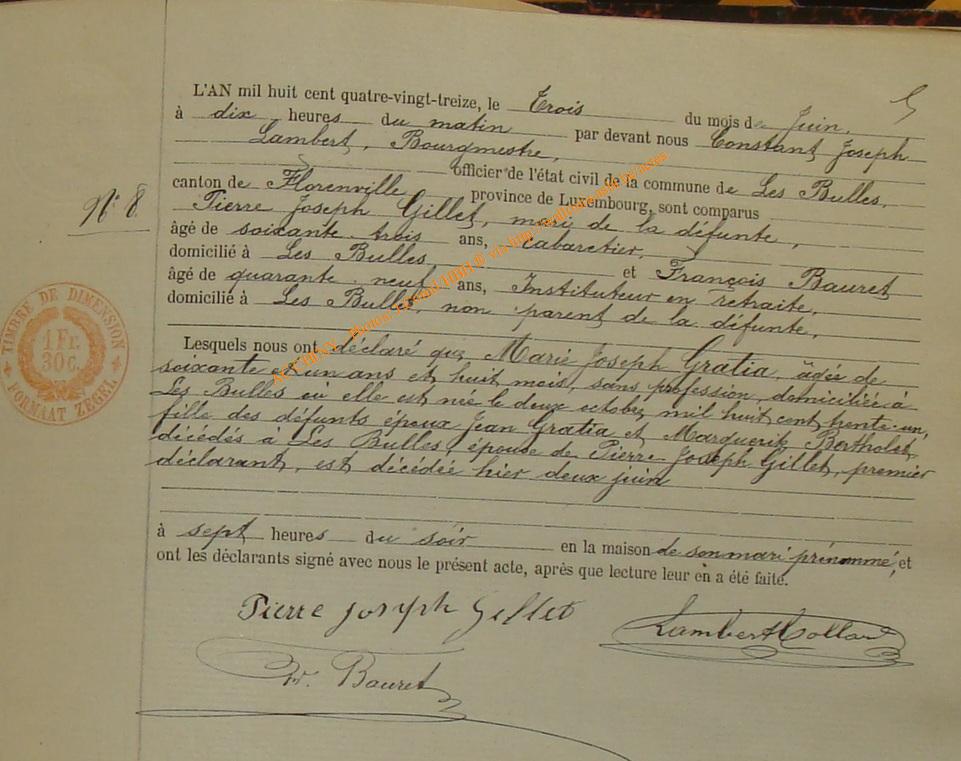 5
L'AN mil huit cent quatre-vingt-treize, le Trois du mois de Juin,
à dix heures du matin par devant nous Constant Joseph
Lambert, Bourgmestre,
officier de l'état civil de la commune de Les Bulles,
canton de Florenville province de Luxembourg, sont comparus
N° 8
Pierre Joseph Gillet, mari de la défunte,
âgé de soixante trois ans, cabaretier,
domicilié à Les Bulles, et François Bauret
âgé de quarante neuf ans, Instituteur en retraite,
domicilié à Les Bulles, non parent de la défunte,
TIMBRE DE DIMENSION
1 Fr.
30c.
FORMAAT ZEGEL
Lesquels nous ont déclaré que Marie Joseph Gratia, âgée de
soixante et un ans et huit mois, sans profession, domiciliée à
Les Bulles où elle est née le deux octobre mil huit cent trente-un,
fille des défunts époux Jean Gratia et Marguerite Bertholet,
décédés à Les Bulles, épouse de Pierre Joseph Gillet, premier
déclarant, est décédée hier deux juin
à sept heures du soir en la maison de son mari prénommé, et
ont les déclarants signé avec nous le présent acte, après que lecture leur en a été faite.
Pierre Joseph Gillet
Lambert Collard
Fr. Bauret